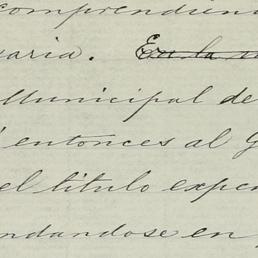 comprendien
saria. En la
Municipal de
entonces al G
el titulo expe
ndandose en